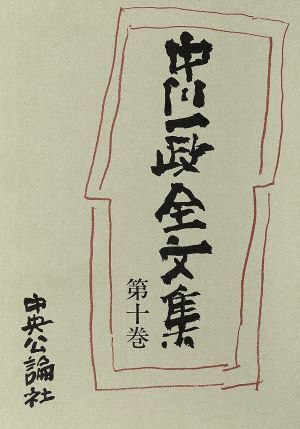 中川一政全文集
第十巻
中央公論社